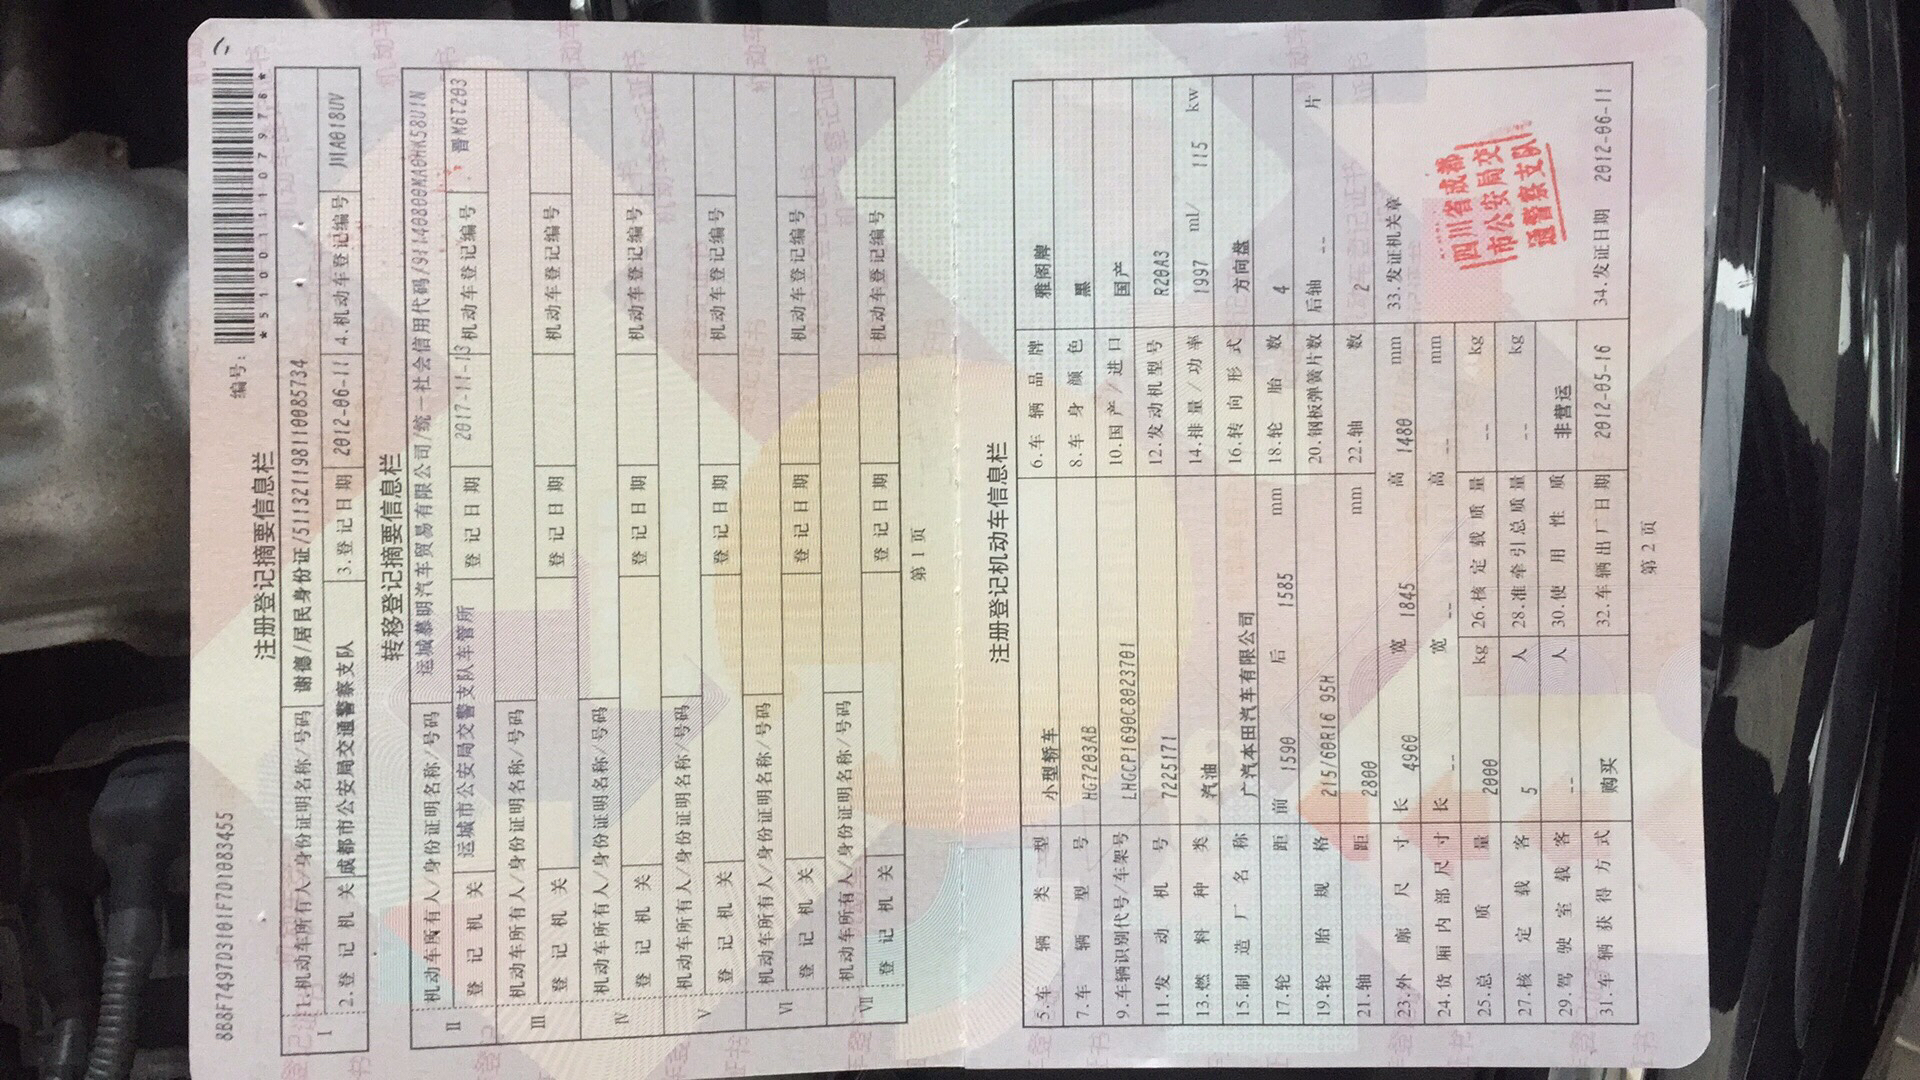 8B8F7497D3101F7D1083455
编号：
*510011107978*
注册登记摘要信息栏
Ⅰ 1.机动车所有人/身份证明名称/号码 谢德/居民身份证/511321198110085734
2.登记机关 成都市公安局交通警察支队 3.登记日期 2012-06-11 4.机动车登记编号 川A018UV
转移登记摘要信息栏
Ⅱ 机动车所有人/身份证明名称/号码 运城慕明汽车贸易有限公司/统一社会信用代码/91140800MA0HK58U1N
登记机关 运城市公安局交警支队车管所 登记日期 2017-11-13 机动车登记编号 晋M6T203
Ⅲ 机动车所有人/身份证明名称/号码
登记机关 登记日期 机动车登记编号
Ⅳ 机动车所有人/身份证明名称/号码
登记机关 登记日期 机动车登记编号
Ⅴ 机动车所有人/身份证明名称/号码
登记机关 登记日期 机动车登记编号
Ⅵ 机动车所有人/身份证明名称/号码
登记机关 登记日期 机动车登记编号
Ⅶ 机动车所有人/身份证明名称/号码
登记机关 登记日期 机动车登记编号
第1页
注册登记机动车信息栏
5.车辆类型 小型轿车 6.车辆品牌 雅阁牌
7.车辆型号 HG7203AB 8.车身颜色 黑
9.车辆识别代号/车架号 LHGCP1690C8023701 10.国产/进口 国产
11.发动机号 7225171 12.发动机型号 R20A3
13.燃料种类 汽油 14.排量/功率 1997 ml/ 115 kw
15.制造厂名称 广汽本田汽车有限公司 16.转向形式 方向盘
17.轮距 前 1590 后 1585 mm 18.轮胎数 4
19.轮胎规格 215/60R16 95H 20.钢板弹簧片数 后轴 -- 片
21.轴距 2800 mm 22.轴数 2
23.外廓尺寸 长 4960 宽 1845 高 1480 mm 33.发证机关章
24.货厢内部尺寸 长 -- 宽 -- 高 -- mm
25.总质量 2000 kg 26.核定载质量 -- kg
27.核定载客 5 人 28.准牵引总质量 -- kg
29.驾驶室载客 -- 人 30.使用性质 非营运
31.车辆获得方式 购买 32.车辆出厂日期 2012-05-16 34.发证日期 2012-06-11
四川省成都
市公安局交
通警察支队
第2页